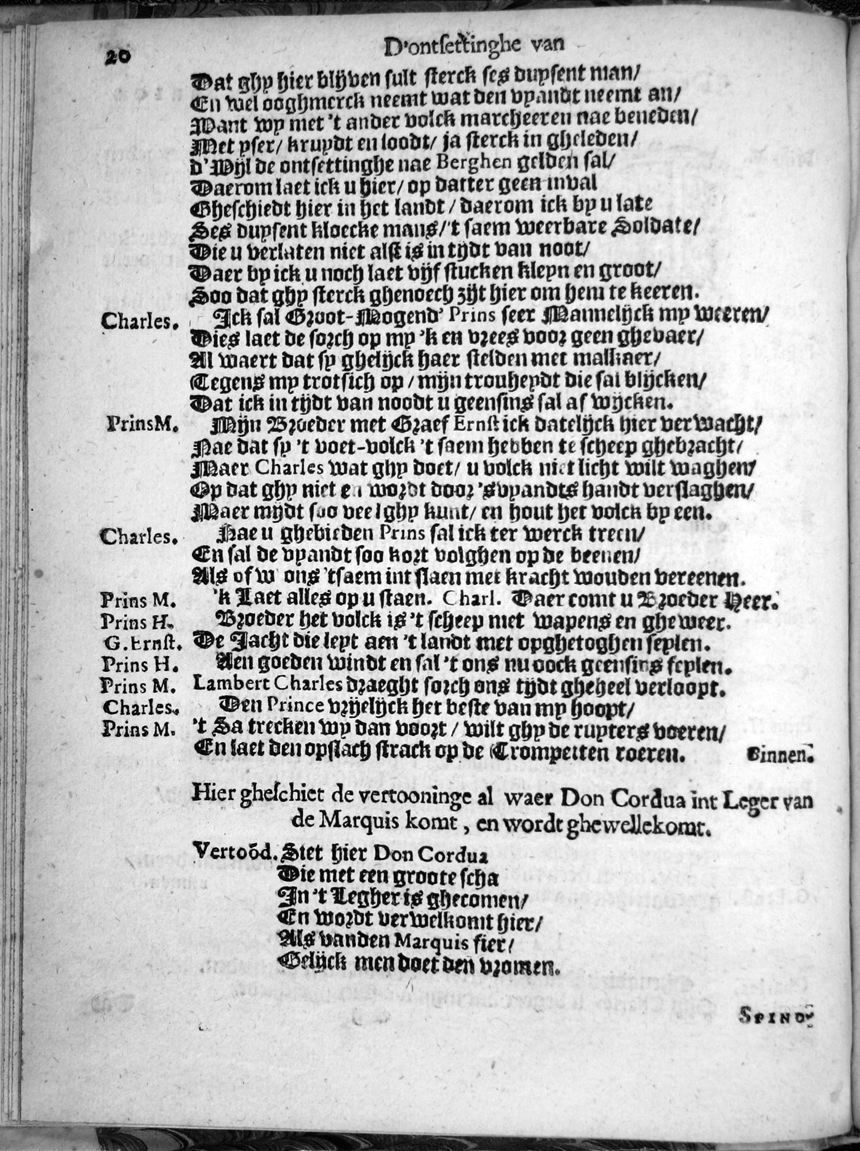 20 D'ontsettinghe van
Dat ghy hier blijven sult sterck ses duysent man/
En wel ooghmerck neemt wat den vyandt neemt an/
Want wy met 't ander volck marcheeren nae beneden/
Met yser/ kruydt en loodt/ ja sterck in gheleden/
d'Wijl de ontsettinghe nae Berghen gelden sal/
Daerom laet ick u hier/ op datter geen inval
Gheschiedt hier in het landt / daerom ick by u late
Ses duysent kloecke mans/'t saem weerbare Soldate/
Die u verlaten niet alst is in tydt van noot/
Daer by ick u noch laet vijf stucken kleyn en groot/
Soo dat ghy sterck ghenoech zijt hier om hem te keeren.
Charles. Ick sal Groot-Mogend' Prins seer Mannelijck my weeren/
Dies laet de sorch op my 'k en vrees voor geen ghevaer/
Al waert dat sy ghelijck haer stelden met malkaer/
Tegens my trotsich op / mijn trouheydt die sal blijcken/
Dat ick in tijdt van noodt u geensins sal af wijcken.
PrinsM. Mijn Broeder met Graef Ernst ick datelijck hier verwacht/
Nae dat sy 't voet-volck 't saem hebben te scheep ghebracht/
Maer Charles wat ghy doet/ u volck niet licht wilt waghen/
Op dat ghy niet en wordt door 'svyandts handt verslaghen/
Maer mydt soo veel ghy kunt/ en hout het volck by een.
Charles. Nae u ghebieden Prins sal ick ter werck treen/
En sal de vyandt soo kort volghen op de beenen/
Als of w' ons 'tsaem int slaen met kracht wouden vereenen.
Prins M. 'k Laet alles op u staen. Charl. Daer comt u Broeder Heer.
Prins H. Broeder het volck is 't scheep met wapens en gheweer.
G. Ernst. De Jacht die leyt aen 't landt met opghetoghen seylen.
Prins H. Aen goeden windt en sal 't ons nu oock geensins feylen.
Prins M. Lambert Charles draeght sorch ons tijdt gheheel verloopt.
Charles. Den Prince vrijelijck het beste van my hoopt/
Prins M. 't Sa trecken wy dan voort / wilt ghy de ruyters voeren/
En laet den opslach strack op de Trompetten roeren. Binnen.
Hier gheschiet de vertooninge al waer Don Cordua int Leger van
de Marquis komt, en wordt ghewellekomt.
Vertoõd. Siet hier Don Cordua
Die met een groote scha
In 't Legher is ghecomen/
En wordt verwelkomt hier/
Als vanden Marquis fier/
Gelijck men doet den vromen.
SPINO-